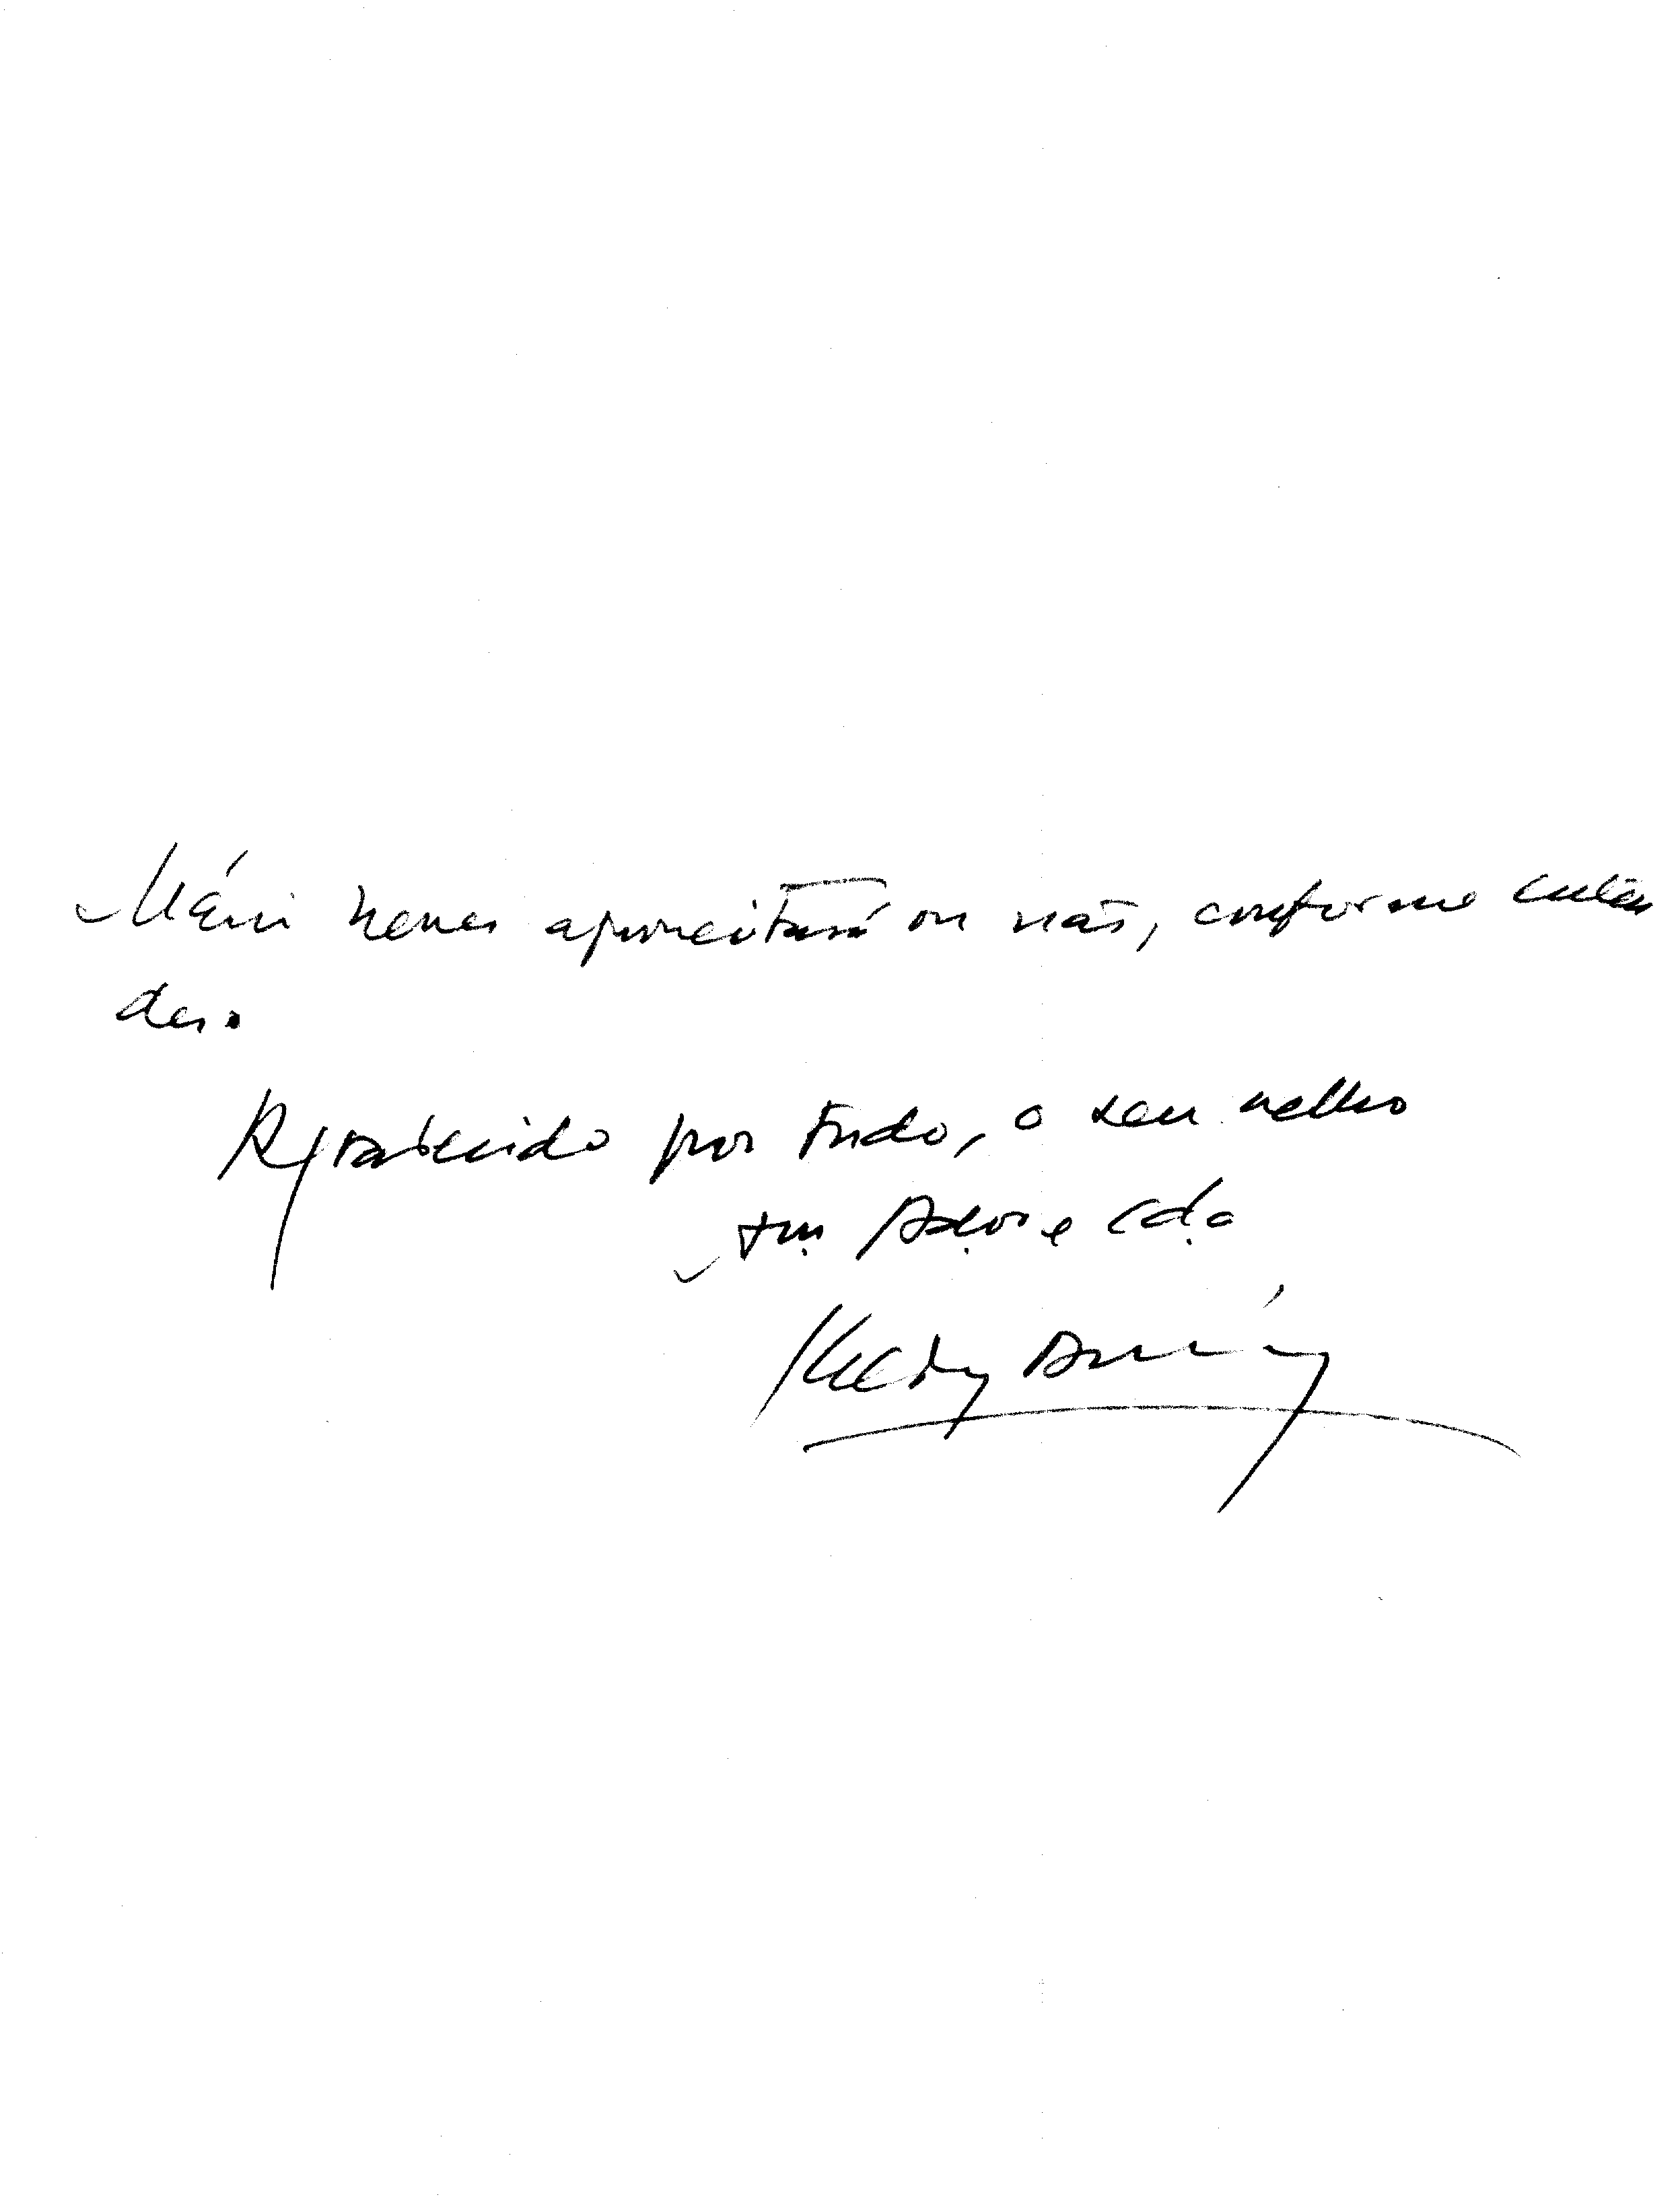 Mário Neves aproveitará ou não, conforme enten
der.
Agradecido por tudo, o seu velho
am. Ador. e